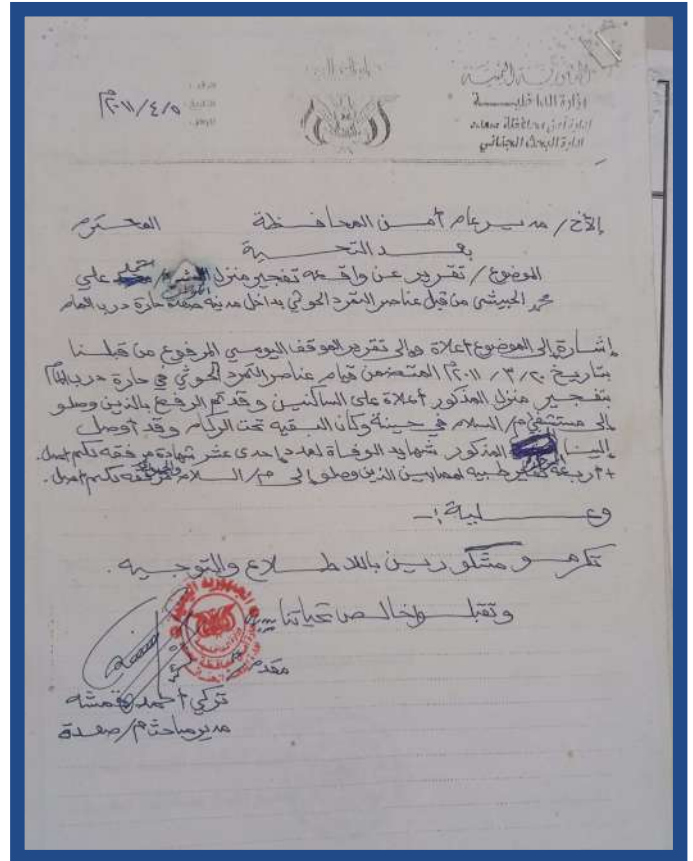 الجمهورية اليمنية
وزارة الداخلية
ادارة أمن محافظة صعده
ادارة البحث الجنائي
٢٠١١/٤/٥م
الأخ/ مدير عام أمن المحافظة المحترم
بعد التحية
الموضوع/ تقرير عن واقعه تفجير منزل علي
محمد الحبيشي من قبل عناصر التمرد الحوثي بداخل مدينه صعده حارة درب الامام
إشارة إلى الموضوع أعلاة وإلى تقرير الموقف اليومي المرفوع من قبلنا
بتاريخ ٢٠/٣/٢٠١١م المتضمن قيام عناصر التمرد الحوثي في حارة درب
بتفجير منزل المذكور أعلاة على الساكنين وقد تم الرفع بالذين وصلو
إلى مستشفى م/ السلام في حينة وكان البقيه تحت الركام وقد أوصل
إلينا المذكور شهايد الوفاة لعدد إحدى عشر شهادة مرفقه
+ أربعة تقارير طبيه لمصابين الذين وصلو إلى م/ السلام
وعلية :-
تكرمو مشكورين بالاطلاع والتوجيه.
وتقبلو خالص تحياتنا
مقدم/
تركي أحمد
مدير مباحث م/ صعدة